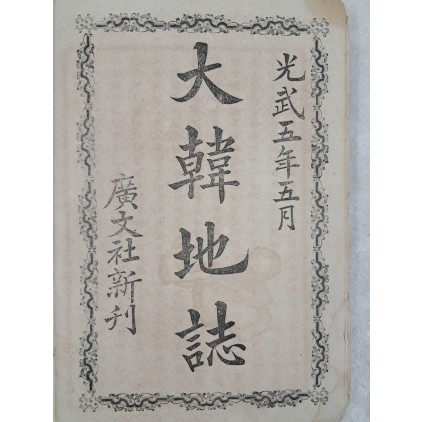 光武五年五月
大韓地誌
廣文社新刊